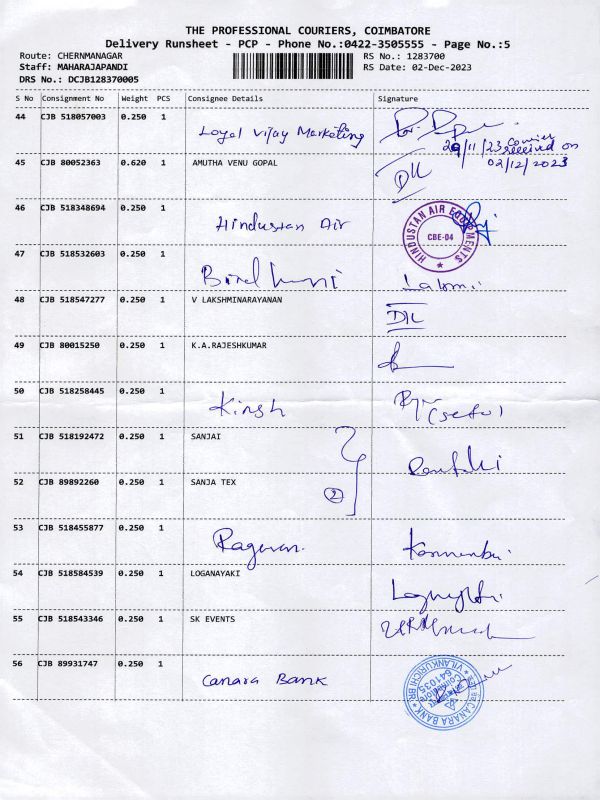 THE PROFESSIONAL COURIERS, COIMBATORE
Delivery Runsheet - PCP - Phone No.:0422-3505555 - Page No.:5
Route: CHERNMANAGAR RS No.: 1283700
Staff: MAHARAJAPANDI RS Date: 02-Dec-2023
DRS No.: DCJB128370005
S No Consignment No Weight PCS Consignee Details Signature
44 CJB 518057003 0.250 1
Loyal Vijay Marketing
29/11/23 Courier
received on
02/12/2023
45 CJB 80052363 0.620 1 AMUTHA VENU GOPAL
DL
46 CJB 518348694 0.250 1
Hindustan Air
HINDUSTAN AIR EQUIPMENTS
CBE-04
47 CJB 518532603 0.250 1
48 CJB 518547277 0.250 1 V LAKSHMINARAYANAN
DL
49 CJB 80015250 0.250 1 K.A.RAJESHKUMAR
50 CJB 518258445 0.250 1
Kirsh
51 CJB 518192472 0.250 1 SANJAI
52 CJB 89892260 0.250 1 SANJA TEX
2
53 CJB 518455877 0.250 1
Raguvan.
54 CJB 518584539 0.250 1 LOGANAYAKI
55 CJB 518543346 0.250 1 SK EVENTS
56 CJB 89931747 0.250 1
Canara Bank
CANARA BANK VILANKURICHI BR
Coimbatore
641035